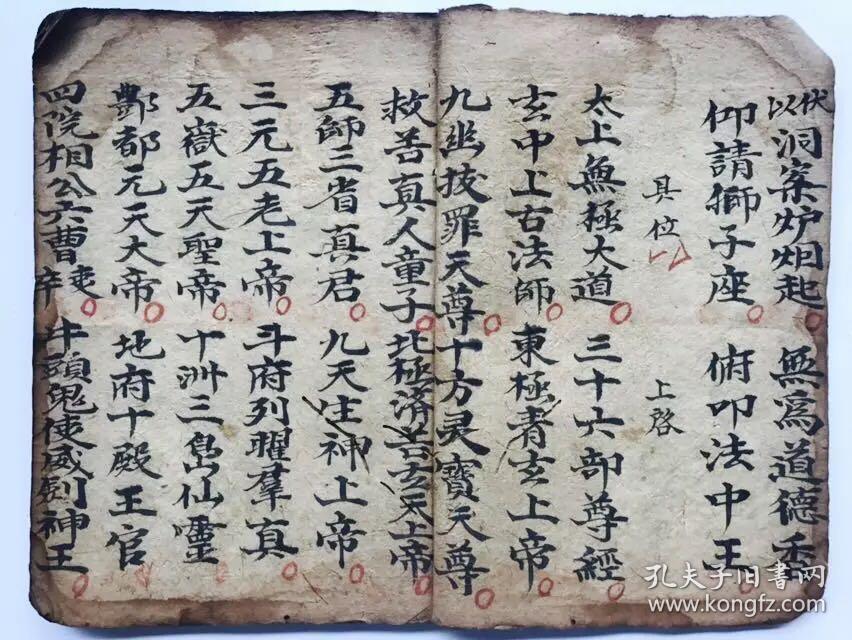 伏以洞案炉烟起 無為道德香
仰請獅子座 俯叩法中王
具位 上啓
太上無極大道 三十六部尊經
玄中上古法師 東極青玄上帝
九幽拔罪天尊 十方灵寶天尊
救苦真人童子 北極済苦玄天上帝
五師三省真君 九天生神上帝
三元五老上帝 斗府列曜羣真
五嶽五天聖帝 十洲三島仙靈
酆都元天大帝 地府十殿王官
四院相公六曹吏卒 牛頭鬼使威剑神王
孔夫子旧書网
www.kongfz.com